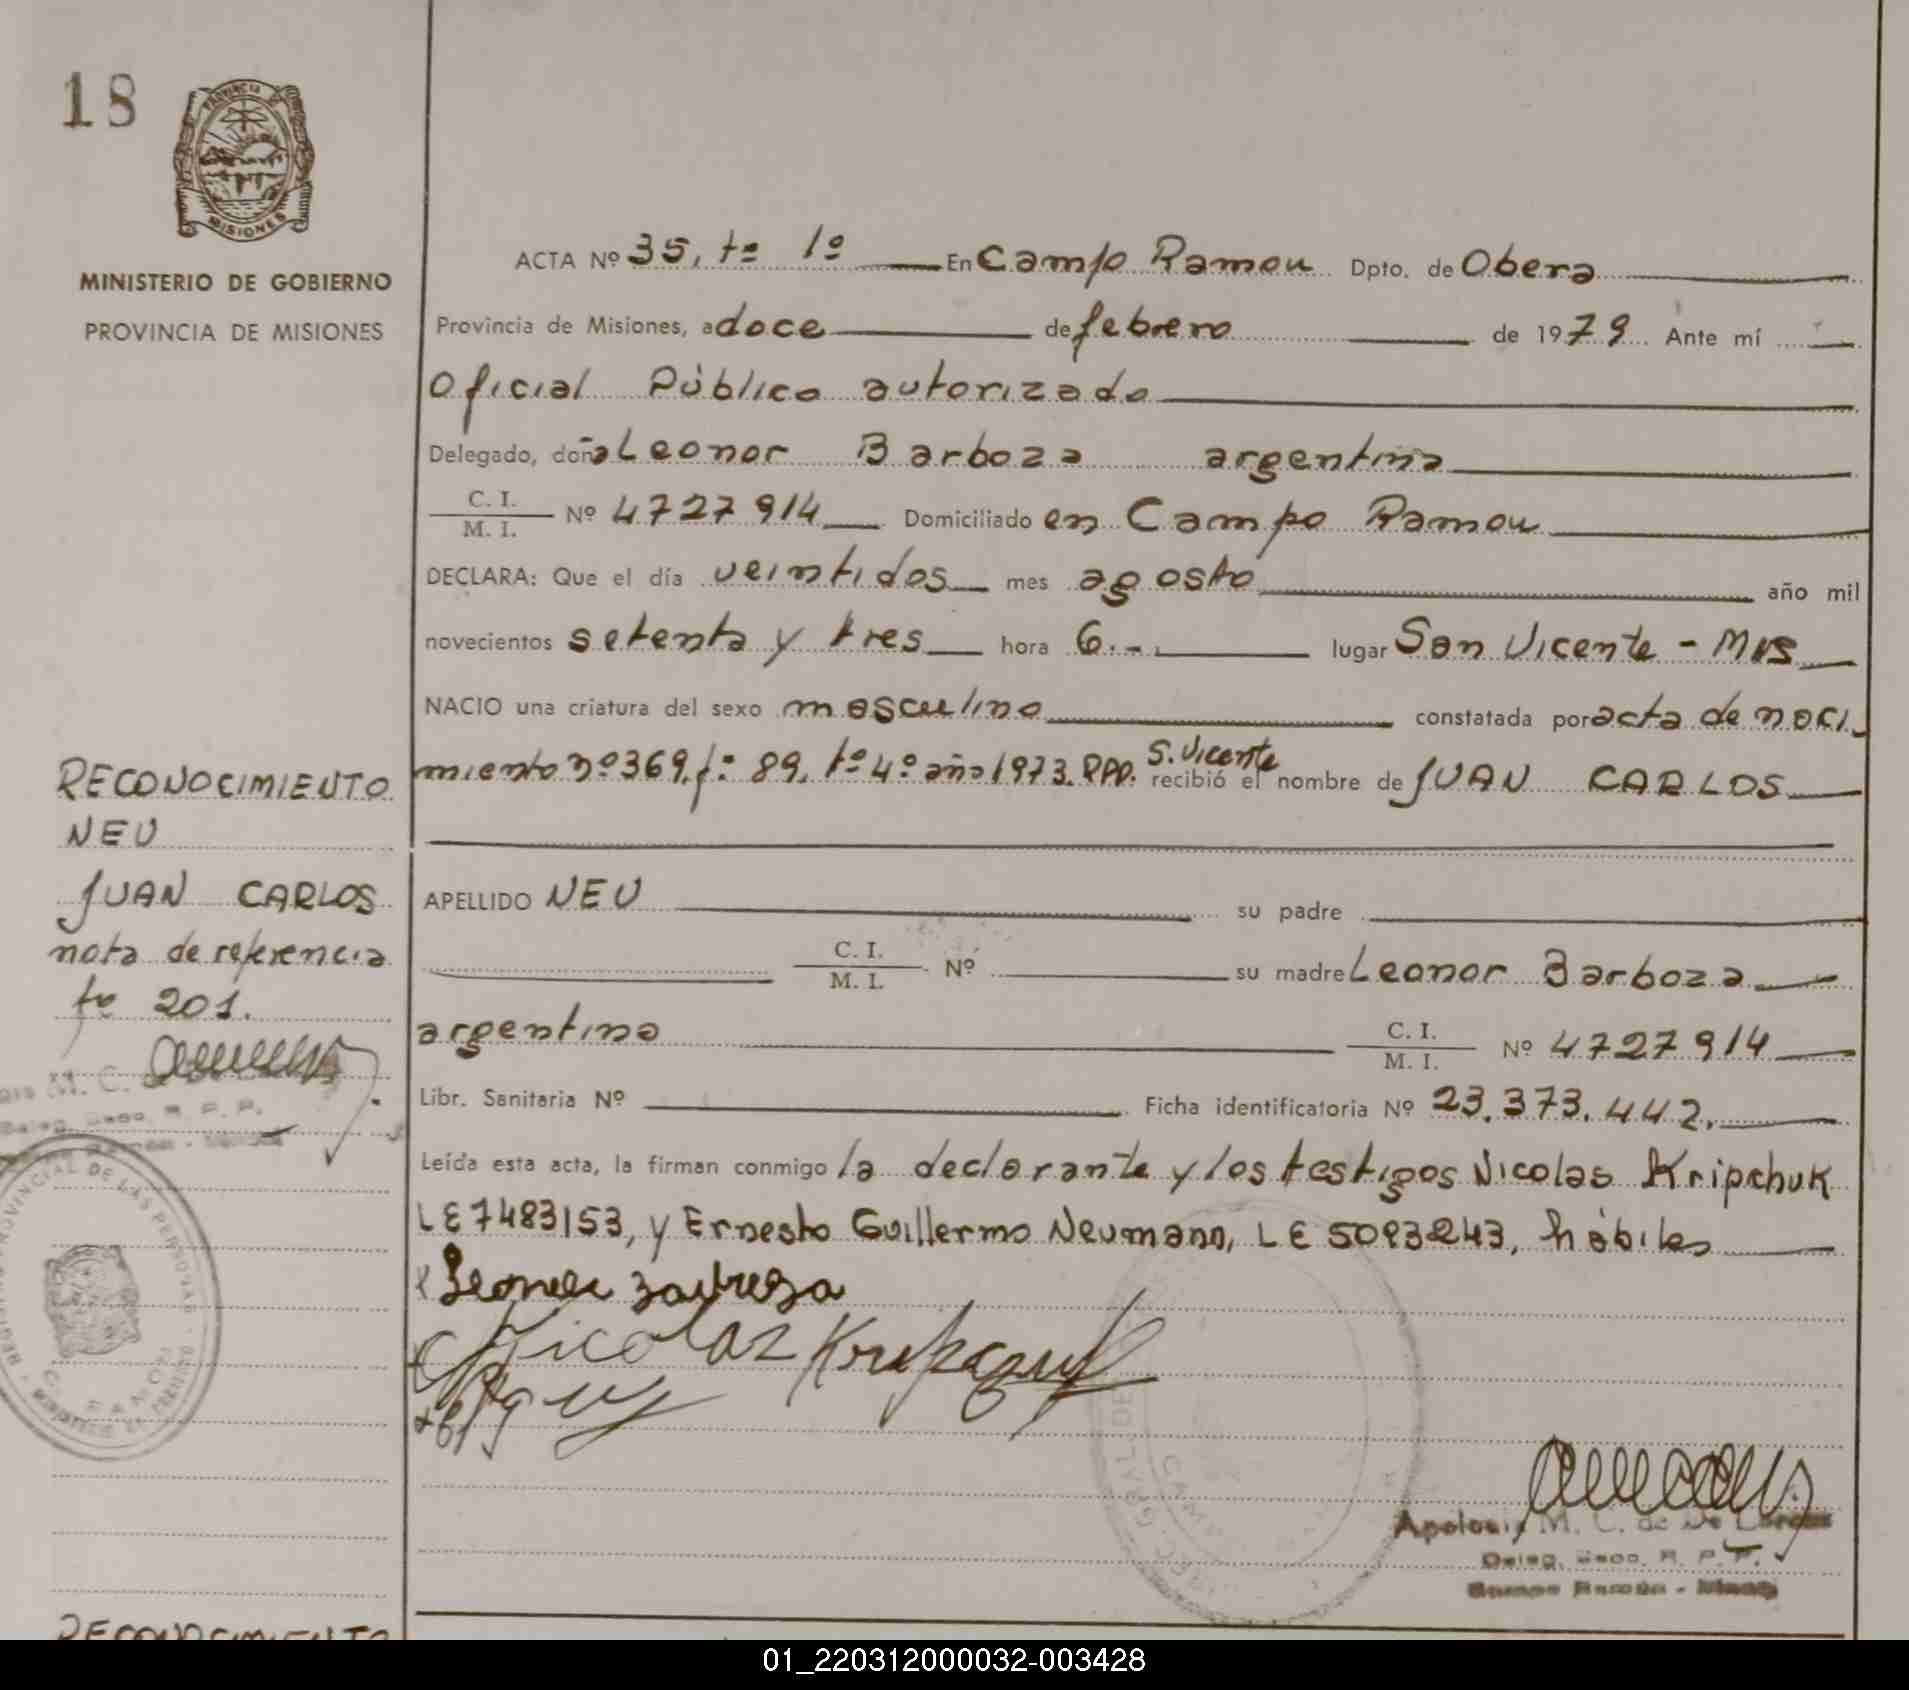 18
PROVINCIA DE
MISIONES
MINISTERIO DE GOBIERNO
PROVINCIA DE MISIONES
ACTA Nº 35, tº 1º En Campo Ramon Dpto. de Obera
Provincia de Misiones, a doce de febrero de 1979 Ante mí
Oficial Público autorizado
Delegado, doña Leonor Barboza argentina
C. I.
M. I. Nº 4727914 Domiciliado en Campo Ramon
DECLARA: Que el día veintidos mes agosto año mil
novecientos setenta y tres hora 6.-. lugar San Vicente - Mis
NACIO una criatura del sexo masculino constatada por acta de naci-
miento nº 369, fº 89, tº 4º año 1973. RPP. S. Vicente recibió el nombre de JUAN CARLOS
APELLIDO NEU su padre
C. I.
M. I. Nº su madre Leonor Barboza
argentina C. I.
M. I. Nº 4727914
Libr. Sanitaria Nº Ficha identificatoria Nº 23.373.442.
Leída esta acta, la firman conmigo la declarante y los testigos Nicolas Kripchuk
LE 7483153, y Ernesto Guillermo Neumann, LE 5093243, hábiles
Nicolaz
Apolonia M. C. de De
Deleg. R. P. P.
RECONOCIMIENTO
NEU
JUAN CARLOS
nota de referencia
fº 201.
M. C.
Deleg. R. P. P.
PROVINCIAL DE LAS PERSONAS
RECONOCIMIENTO
01_220312000032-003428